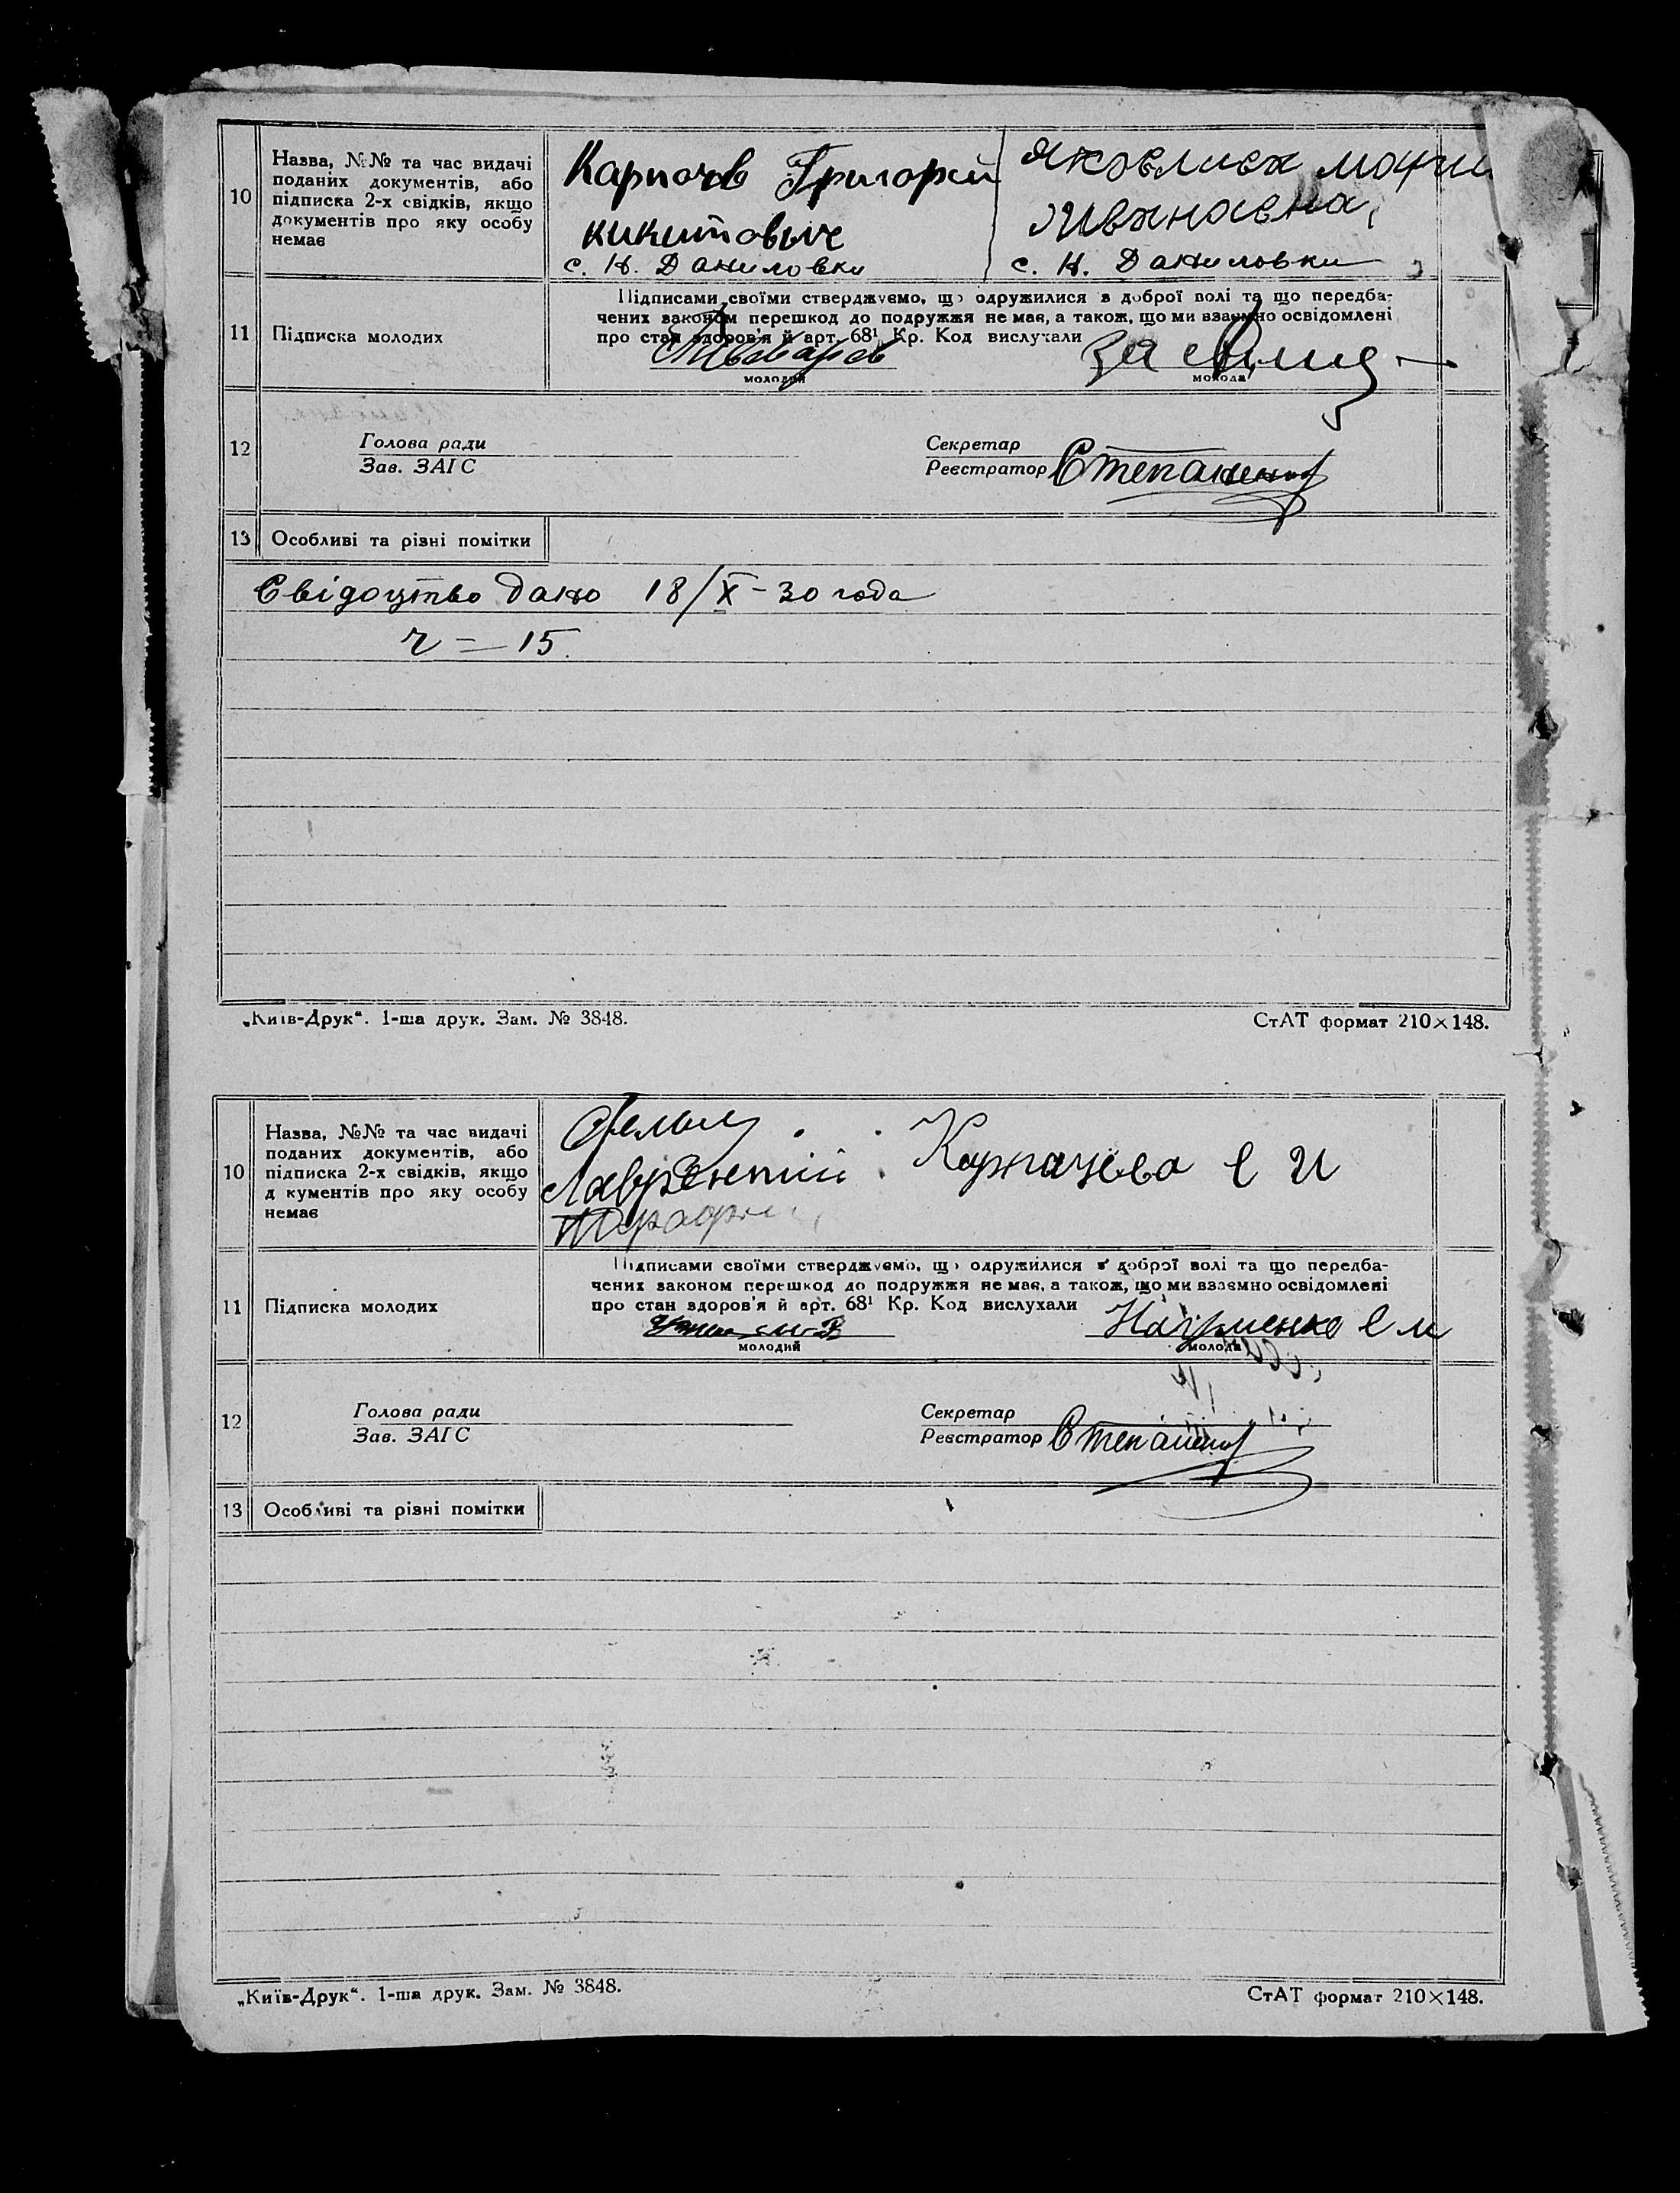 10
Назва, №№ та час видачі
поданих документів, або
підписка 2-х свідків, якщо
документів про яку особу
немає
Карпачів Григорій
Никитович
с. Н. Даниловки
Ивановна,
с. Н. Даниловки
11
Підписка молодих
Підписами своїми стверджуємо, що одружилися з доброї волі та що передба-
чених законом перешкод до подружжя не має, а також, що ми взаємно освідомлені
про стан здоров'я й арт. 68¹ Кр. Код вислухали
молодий
молода
12
Голова ради
Зав. ЗАГС
Секретар
Реєстратор
13
Особливі та різні помітки
Свідоцтво дано 18/X-30 года
15.
„Київ-Друк“. 1-ша друк. Зам. № 3848.
СтАТ формат 210×148.
10
Назва, №№ та час видачі
поданих документів, або
підписка 2-х свідків, якщо
д кументів про яку особу
немає
Лаврентій
Карпачева Е И
11
Підписка молодих
Підписами своїми стверджуємо, що одружилися з доброї волі та що передба-
чених законом перешкод до подружжя не має, а також, що ми взаємно освідомлені
про стан здоров'я й арт. 68¹ Кр. Код вислухали
молодий
молода
12
Голова ради
Зав. ЗАГС
Секретар
Реєстратор
13
Особливі та різні помітки
„Київ-Друк“. 1-ша друк. Зам. № 3848.
СтАТ формат 210×148.